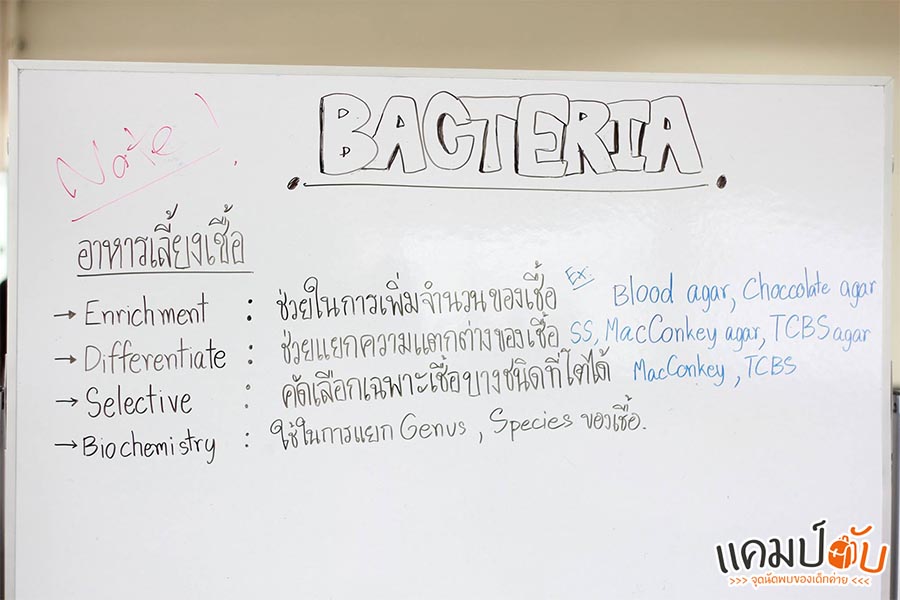 Note!
BACTERIA
อาหารเลี้ยงเชื้อ
→ Enrichment : ช่วยในการเพิ่มจำนวนของเชื้อ Ex: Blood agar, Choccolate agar
→ Differentiate : ช่วยแยกความแตกต่างของเชื้อ SS, MacConkey agar, TCBS agar
→ Selective : คัดเลือกเฉพาะเชื้อบางชนิดที่โตได้ MacConkey, TCBS
→ Biochemistry : ใช้ในการแยก Genus, Species ของเชื้อ.
แคมป์ฮับ
>>> จุดนัดพบของเด็กค่าย <<<